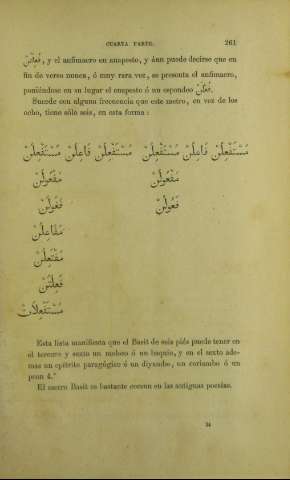 CUARTA PARTE. 261
فَعِلَتُنْ, y el anfimacro en anapesto, y áun puede decirse que en
fin de verso nunca, ó muy rara vez, se presenta el anfimacro,
poniéndose en su lugar el anapesto ó un espondeo فَعْلُنْ.
Sucede con alguna frecuencia que este metro, en vez de los
ocho, tiene sólo seis, en esta forma:
مُسْتَفْعِلُنْ فَاعِلُنْ مُسْتَفْعِلُنْ مُسْتَفْعِلُنْ فَاعِلُنْ مُسْتَفْعِلُنْ
مَفْعُولُنْ مَفْعُولُنْ
فَعُولُنْ فَعُولُنْ
مَفَاعِلُنْ
مُفْتَعِلُنْ
فَعِلَتُنْ
مُسْتَفْعِلَاتُنْ
Esta lista manifiesta que el Basit de seis piés puede tener en
el tercero y sexto un moloso ó un baquio, y en el sexto ade-
mas un epitrito paragógico ó un diyambo, un coriambo ó un
peon 4.°
El metro Basit es bastante comun en las antiguas poesías.
34